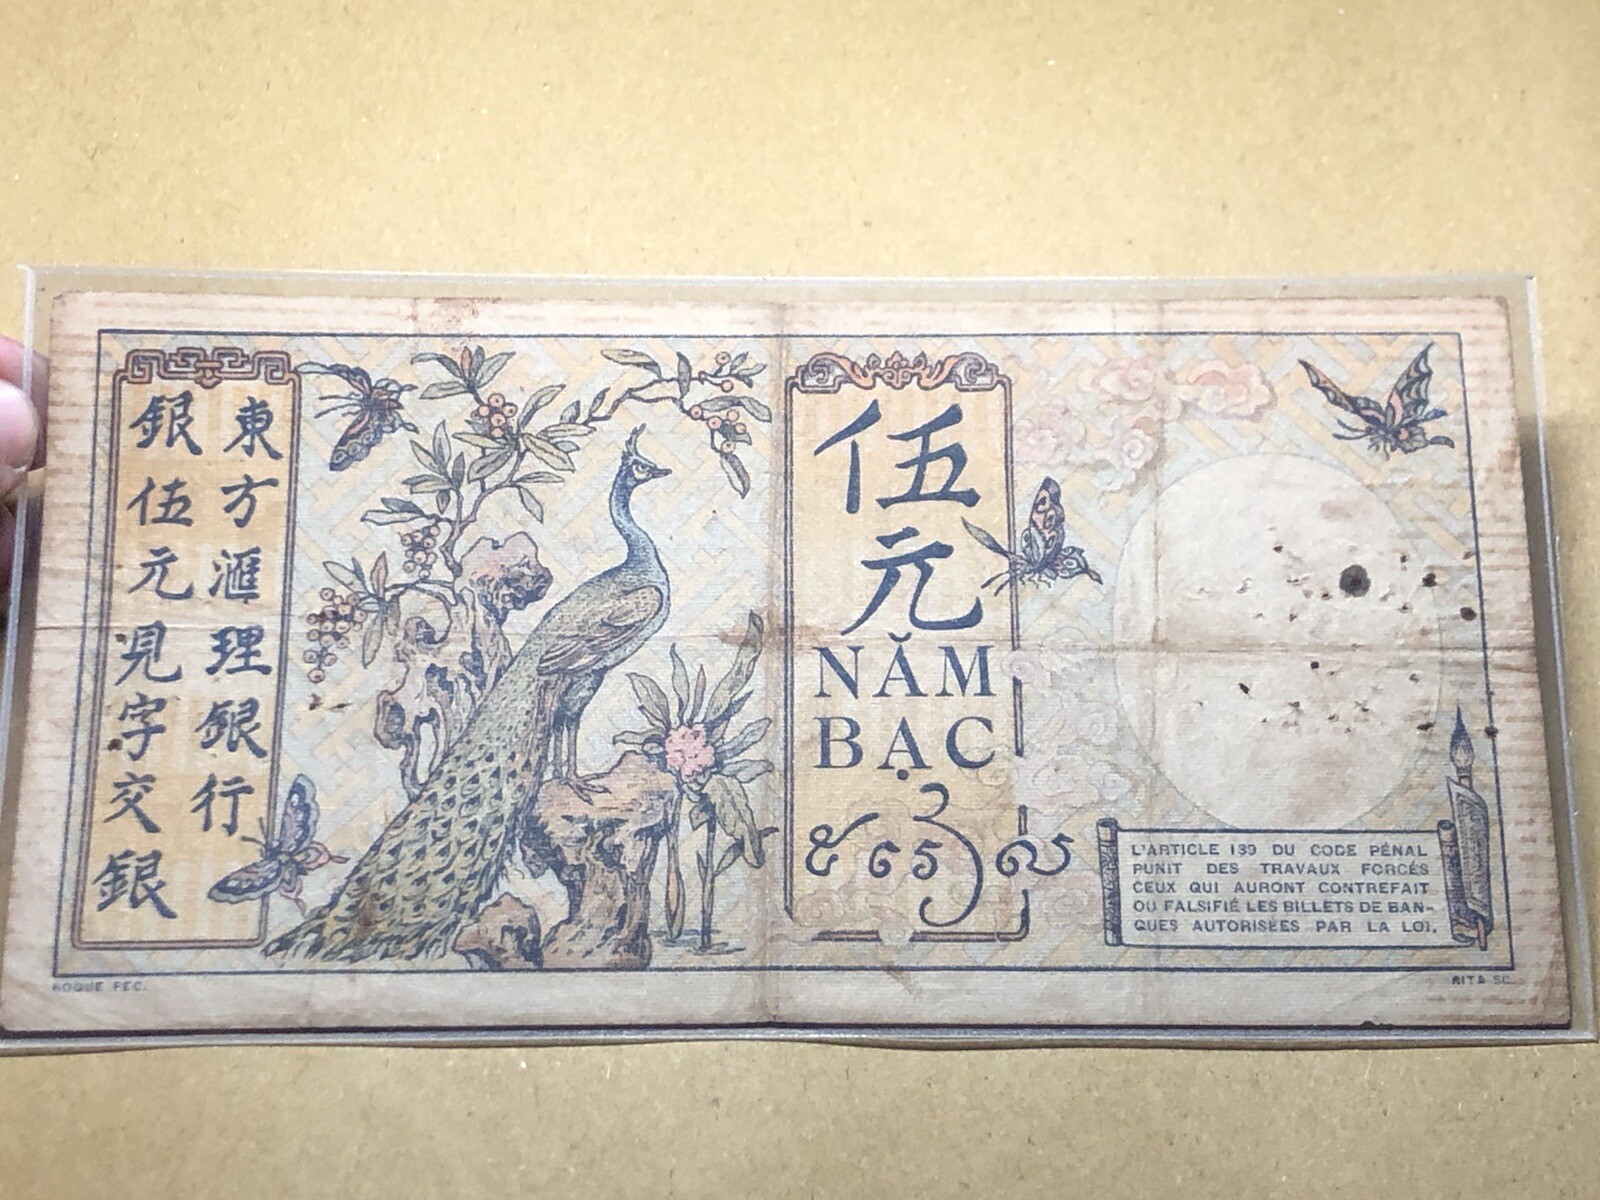 東方滙理銀行
銀伍元見字交銀
伍元
NĂM
BẠC
៥ រៀល
L'ARTICLE 139 DU CODE PÉNAL
PUNIT DES TRAVAUX FORCÉS
CEUX QUI AURONT CONTREFAIT
OU FALSIFIÉ LES BILLETS DE BAN-
QUES AUTORISÉES PAR LA LOI.
ROQUE FEC.
RITA SC.